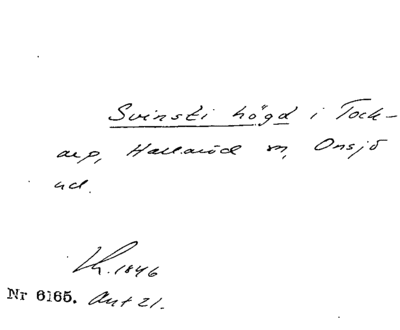 Svinski högd i Tock-
arp, Hallaröd sn, Onsjö
hd.
Kr. 1846
Nr 6165. Ant 21.